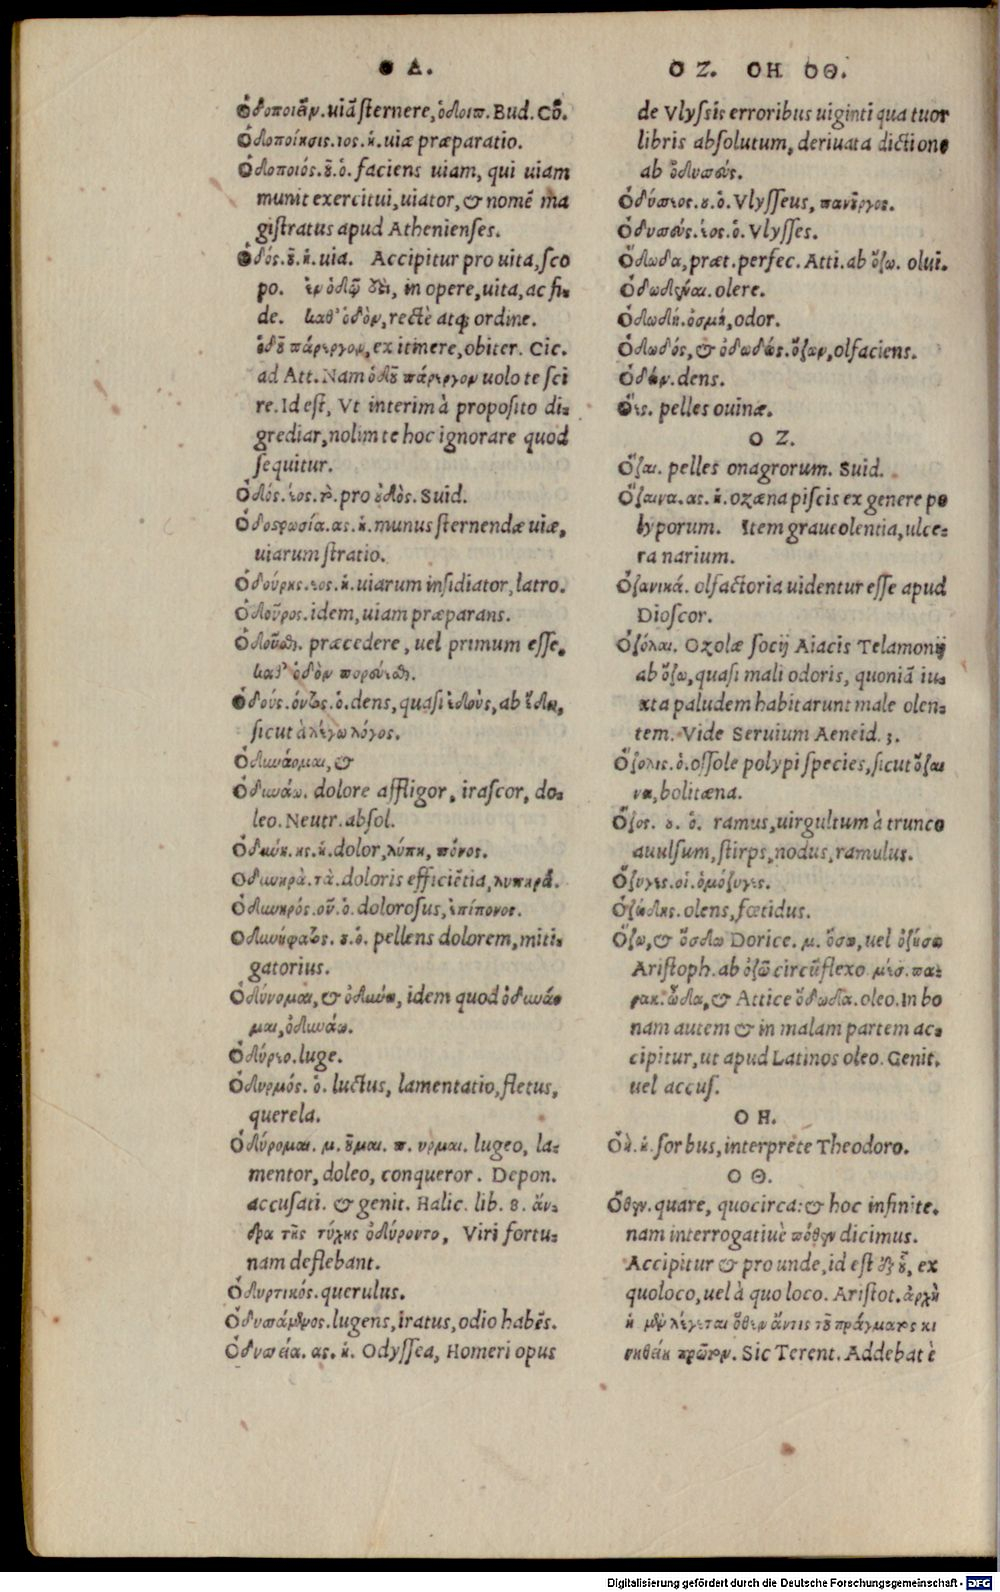 Ο Δ.
Ὁδοποιεῖν. uiã sternere, ὁδοιπ. Bud. Cō.
Ὁδοποίησις. ιος. ἡ. uiæ præparatio.
Ὁδοποιός. οῦ. ὁ. faciens uiam, qui uiam
munit exercitui, uiator, & nomẽ ma
gistratus apud Athenienses.
Ὁδός. οῦ. ἡ. uia. Accipitur pro uita, sco
po. ἐν ὁδῷ, in opere, uita, ac fi-
de. καθ' ὁδὸν, rectè atq; ordine.
ὁδοῦ πάρεργον, ex itinere, obiter. Cic.
ad Att. Nam ὁδοῦ πάρεργον uolo te sci
re. Id est, Vt interim à proposito di-
grediar, nolim te hoc ignorare quod
sequitur.
Ὁδός. pro οὐδὸς. Suid.
Ὁδοστρωσία. ας. ἡ. munus sternendæ uiæ,
uiarum stratio.
Ὁδούρης. ἡ. uiarum insidiator, latro.
Ὁδοῦρος. idem, uiam præparans.
præcedere, uel primum esse.
καθ' ὁδὸν πορεύεσθαι.
Ὀδούς. όντος. ὁ. dens, quasi ἐδοὺς, ab ἔδω,
sicut à λέγω λόγος.
Ὀδυνάομαι, &
Ὀδυνάω. dolore affligor, irascor, do-
leo. Neutr. absol.
Ὀδύνη. ης. ἡ. dolor, λύπη, πόνος.
Ὀδυνηρὰ. τὰ. doloris efficiẽtia, λυπηρά.
Ὀδυνηρός. οῦ. ὁ. dolorosus, ἐπίπονος.
Ὀδυνήφατος. ου. ὁ. pellens dolorem, miti-
gatorius.
Ὀδύνομαι, & ὀδύνω, idem quod ὀδυνάο
μαι, ὀδυνάω.
Ὀδύρεο. luge.
Ὀδυρμός. ὁ. luctus, lamentatio, fletus,
querela.
Ὀδύρομαι. μ. οῦμαι. π. υρμαι. lugeo, la-
mentor, doleo, conqueror. Depon.
accusati. & genit. Halic. lib. 8. ἄν-
δρα τῆς τύχης ὀδύροντο, Viri fortu-
nam deflebant.
Ὀδυρτικός. querulus.
Ὀδυσάμενος. lugens, iratus, odio habẽs.
Ὀδυσσεία. ας. ἡ. Odyssea, Homeri opus
Ο Ζ. ΟΗ ΟΘ.
de Vlyssis erroribus uiginti quatuor
libris absolutum, deriuata dictione
ab ὀδυσσεύς.
Ὀδύσσειος. ου. ὁ. Vlysseus, πανοῦργος.
Ὀδυσσεύς. έος. ὁ. Vlysses.
Ὄδωδα, præt. perfec. Atti. ab ὄζω. olui.
Ὀδωδέναι. olere.
Ὀδωδή. ὀσμή, odor.
Ὀδωδός, & ὀδωδώς. ὄζων, olfaciens.
Ὀδών. dens.
pelles ouinæ.
Ο Ζ.
Ὄζαι. pelles onagrorum. Suid.
Ὄζαινα. ας. ἡ. ozæna piscis ex genere po
lyporum. Item graueolentia, ulce-
ra narium.
Ὀζανικά. olfactoria uidentur esse apud
Dioscor.
Ὀζόλαι. Ozolæ socij Aiacis Telamonij
ab ὄζω, quasi mali odoris, quoniã iu-
xta paludem habitarunt male olen-
tem. Vide Seruium Aeneid. 3.
Ὄζολις. ὁ. ossole polypi species, sicut ὄζαι
να, bolitæna.
Ὄζος. ου. ὁ. ramus, uirgultum à trunco
auulsum, stirps, nodus, ramulus.
Ὄζυγες. οἱ. ὁμόζυγες.
Ὀζώδης. olens, fœtidus.
Ὄζω, & ὄσδω Dorice. μ. ὄσω, uel ὀζήσω
Aristoph. ab ὀζῶ circũflexo. μέσ. πα-
ρακ. ὦδα, & Attice ὄδωδα. oleo. In bo
nam autem & in malam partem ac-
cipitur, ut apud Latinos oleo. Genit.
uel accus.
Ο Η.
Ὄη. ἡ. sorbus, interprete Theodoro.
Ο Θ.
Ὅθεν. quare, quocirca: & hoc infinite.
nam interrogatiuè πόθεν dicimus.
Accipitur & pro unde, id est ἐξ οὗ, ex
quo loco, uel à quo loco. Aristot. ἀρχὴ
ἡ μὲν λέγεται ὅθεν ἄν τις τοῦ πράγματος κι
νηθείη πρῶτον. Sic Terent. Addebat è
Digitalisierung gefördert durch die Deutsche Forschungsgemeinschaft - DFG